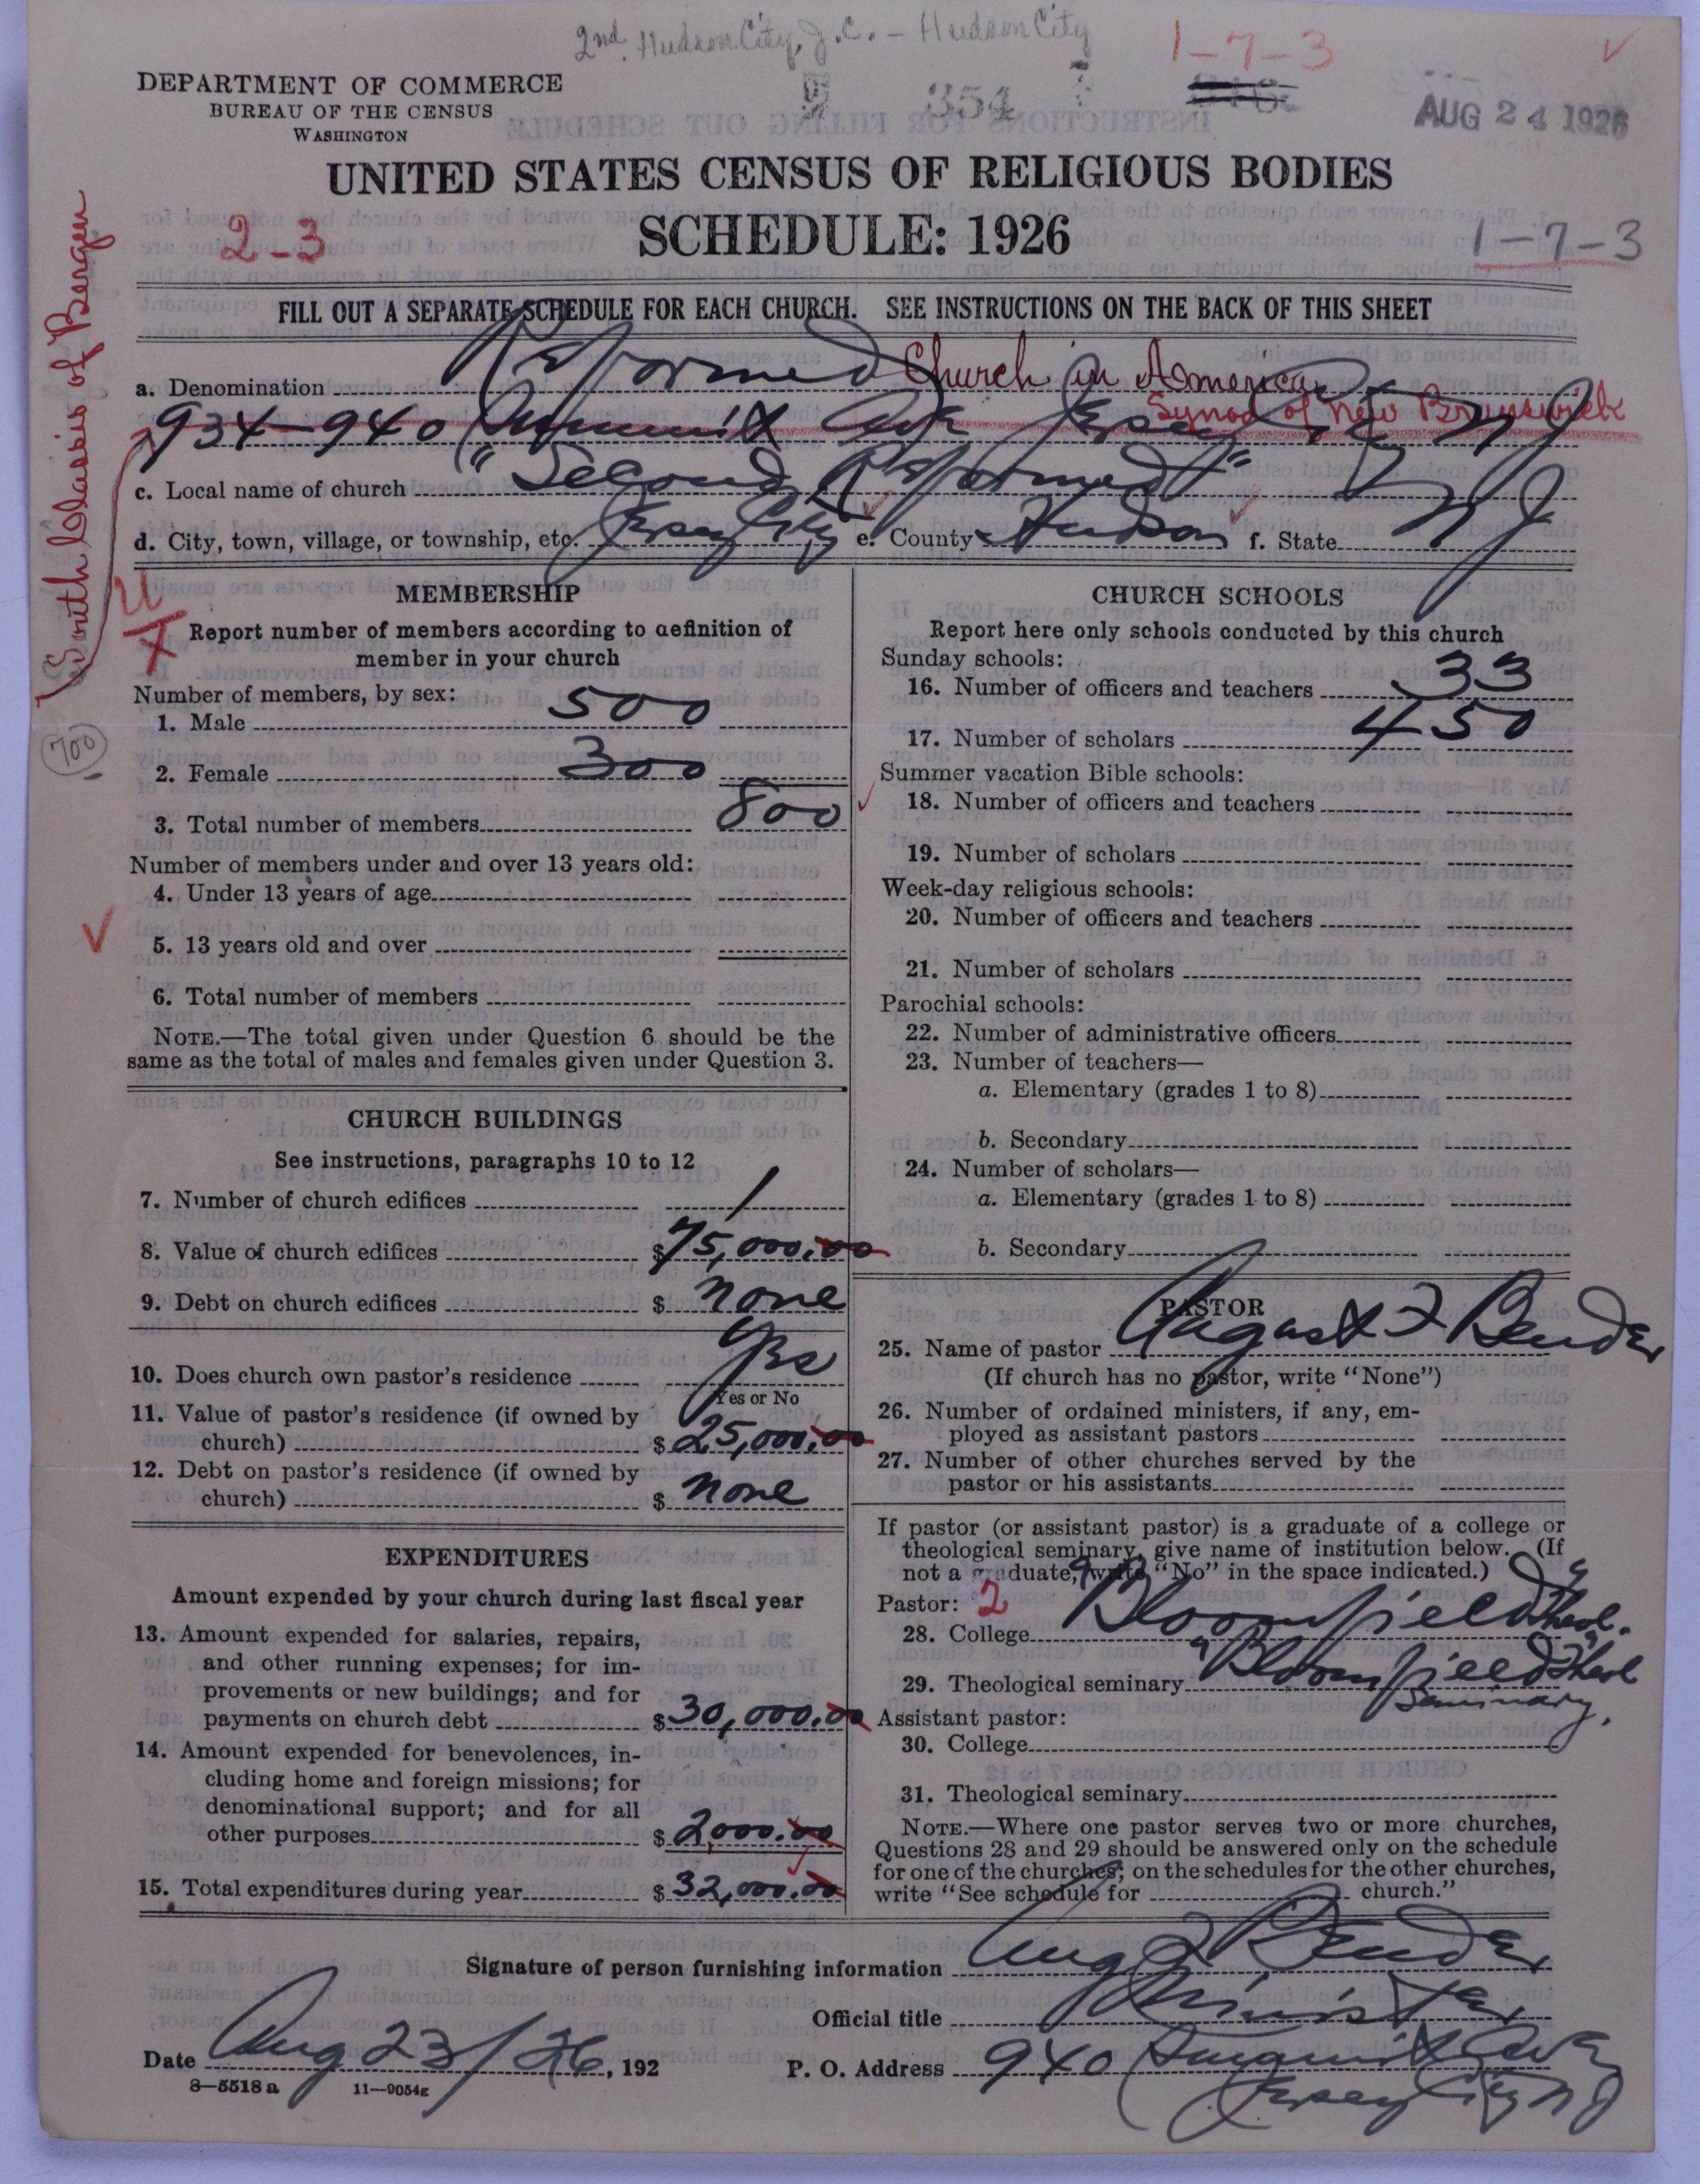 2nd. Hudson City, J.C. - Hudson City
1-7-3
DEPARTMENT OF COMMERCE
BUREAU OF THE CENSUS
WASHINGTON
354
AUG 24 1926
UNITED STATES CENSUS OF RELIGIOUS BODIES
2-3
SCHEDULE: 1926
1-7-3
FILL OUT A SEPARATE SCHEDULE FOR EACH CHURCH. SEE INSTRUCTIONS ON THE BACK OF THIS SHEET
South Classis of Bergen
a. Denomination Reformed Church in America
Synod of New Brunswick
934-940 Summit Ave Jersey City N J
c. Local name of church "Second Reformed"
d. City, town, village, or township, etc. Jersey City e. County Hudson f. State N J
MEMBERSHIP
Report number of members according to definition of
member in your church
Number of members, by sex:
1. Male 500
700
2. Female 300
3. Total number of members 800
Number of members under and over 13 years old:
4. Under 13 years of age
5. 13 years old and over
6. Total number of members
NOTE.—The total given under Question 6 should be the
same as the total of males and females given under Question 3.
CHURCH BUILDINGS
See instructions, paragraphs 10 to 12
7. Number of church edifices 1
8. Value of church edifices $75,000.00
9. Debt on church edifices $ none
10. Does church own pastor's residence Yes
Yes or No
11. Value of pastor's residence (if owned by
church) $25,000.00
12. Debt on pastor's residence (if owned by
church) $ none
EXPENDITURES
Amount expended by your church during last fiscal year
13. Amount expended for salaries, repairs,
and other running expenses; for im-
provements or new buildings; and for
payments on church debt $30,000.00
14. Amount expended for benevolences, in-
cluding home and foreign missions; for
denominational support; and for all
other purposes $2,000.00
15. Total expenditures during year $32,000.00
CHURCH SCHOOLS
Report here only schools conducted by this church
Sunday schools:
16. Number of officers and teachers 33
17. Number of scholars 450
Summer vacation Bible schools:
18. Number of officers and teachers
19. Number of scholars
Week-day religious schools:
20. Number of officers and teachers
21. Number of scholars
Parochial schools:
22. Number of administrative officers
23. Number of teachers—
a. Elementary (grades 1 to 8)
b. Secondary
24. Number of scholars—
a. Elementary (grades 1 to 8)
b. Secondary
PASTOR
25. Name of pastor August F Bender
(If church has no pastor, write "None")
26. Number of ordained ministers, if any, em-
ployed as assistant pastors
27. Number of other churches served by the
pastor or his assistants
If pastor (or assistant pastor) is a graduate of a college or
theological seminary, give name of institution below. (If
not a graduate, write "No" in the space indicated.)
Pastor: 2
28. College Bloomfield Theol.
29. Theological seminary Bloomfield Theol
Seminary.
Assistant pastor:
30. College
31. Theological seminary
NOTE.—Where one pastor serves two or more churches,
Questions 28 and 29 should be answered only on the schedule
for one of the churches; on the schedules for the other churches,
write "See schedule for church."
Signature of person furnishing information Aug F Bender
Official title Minister
Date Aug 23/26, 192 P. O. Address 940 Summit Ave
Jersey City N J
8—5518 a 11—9054g